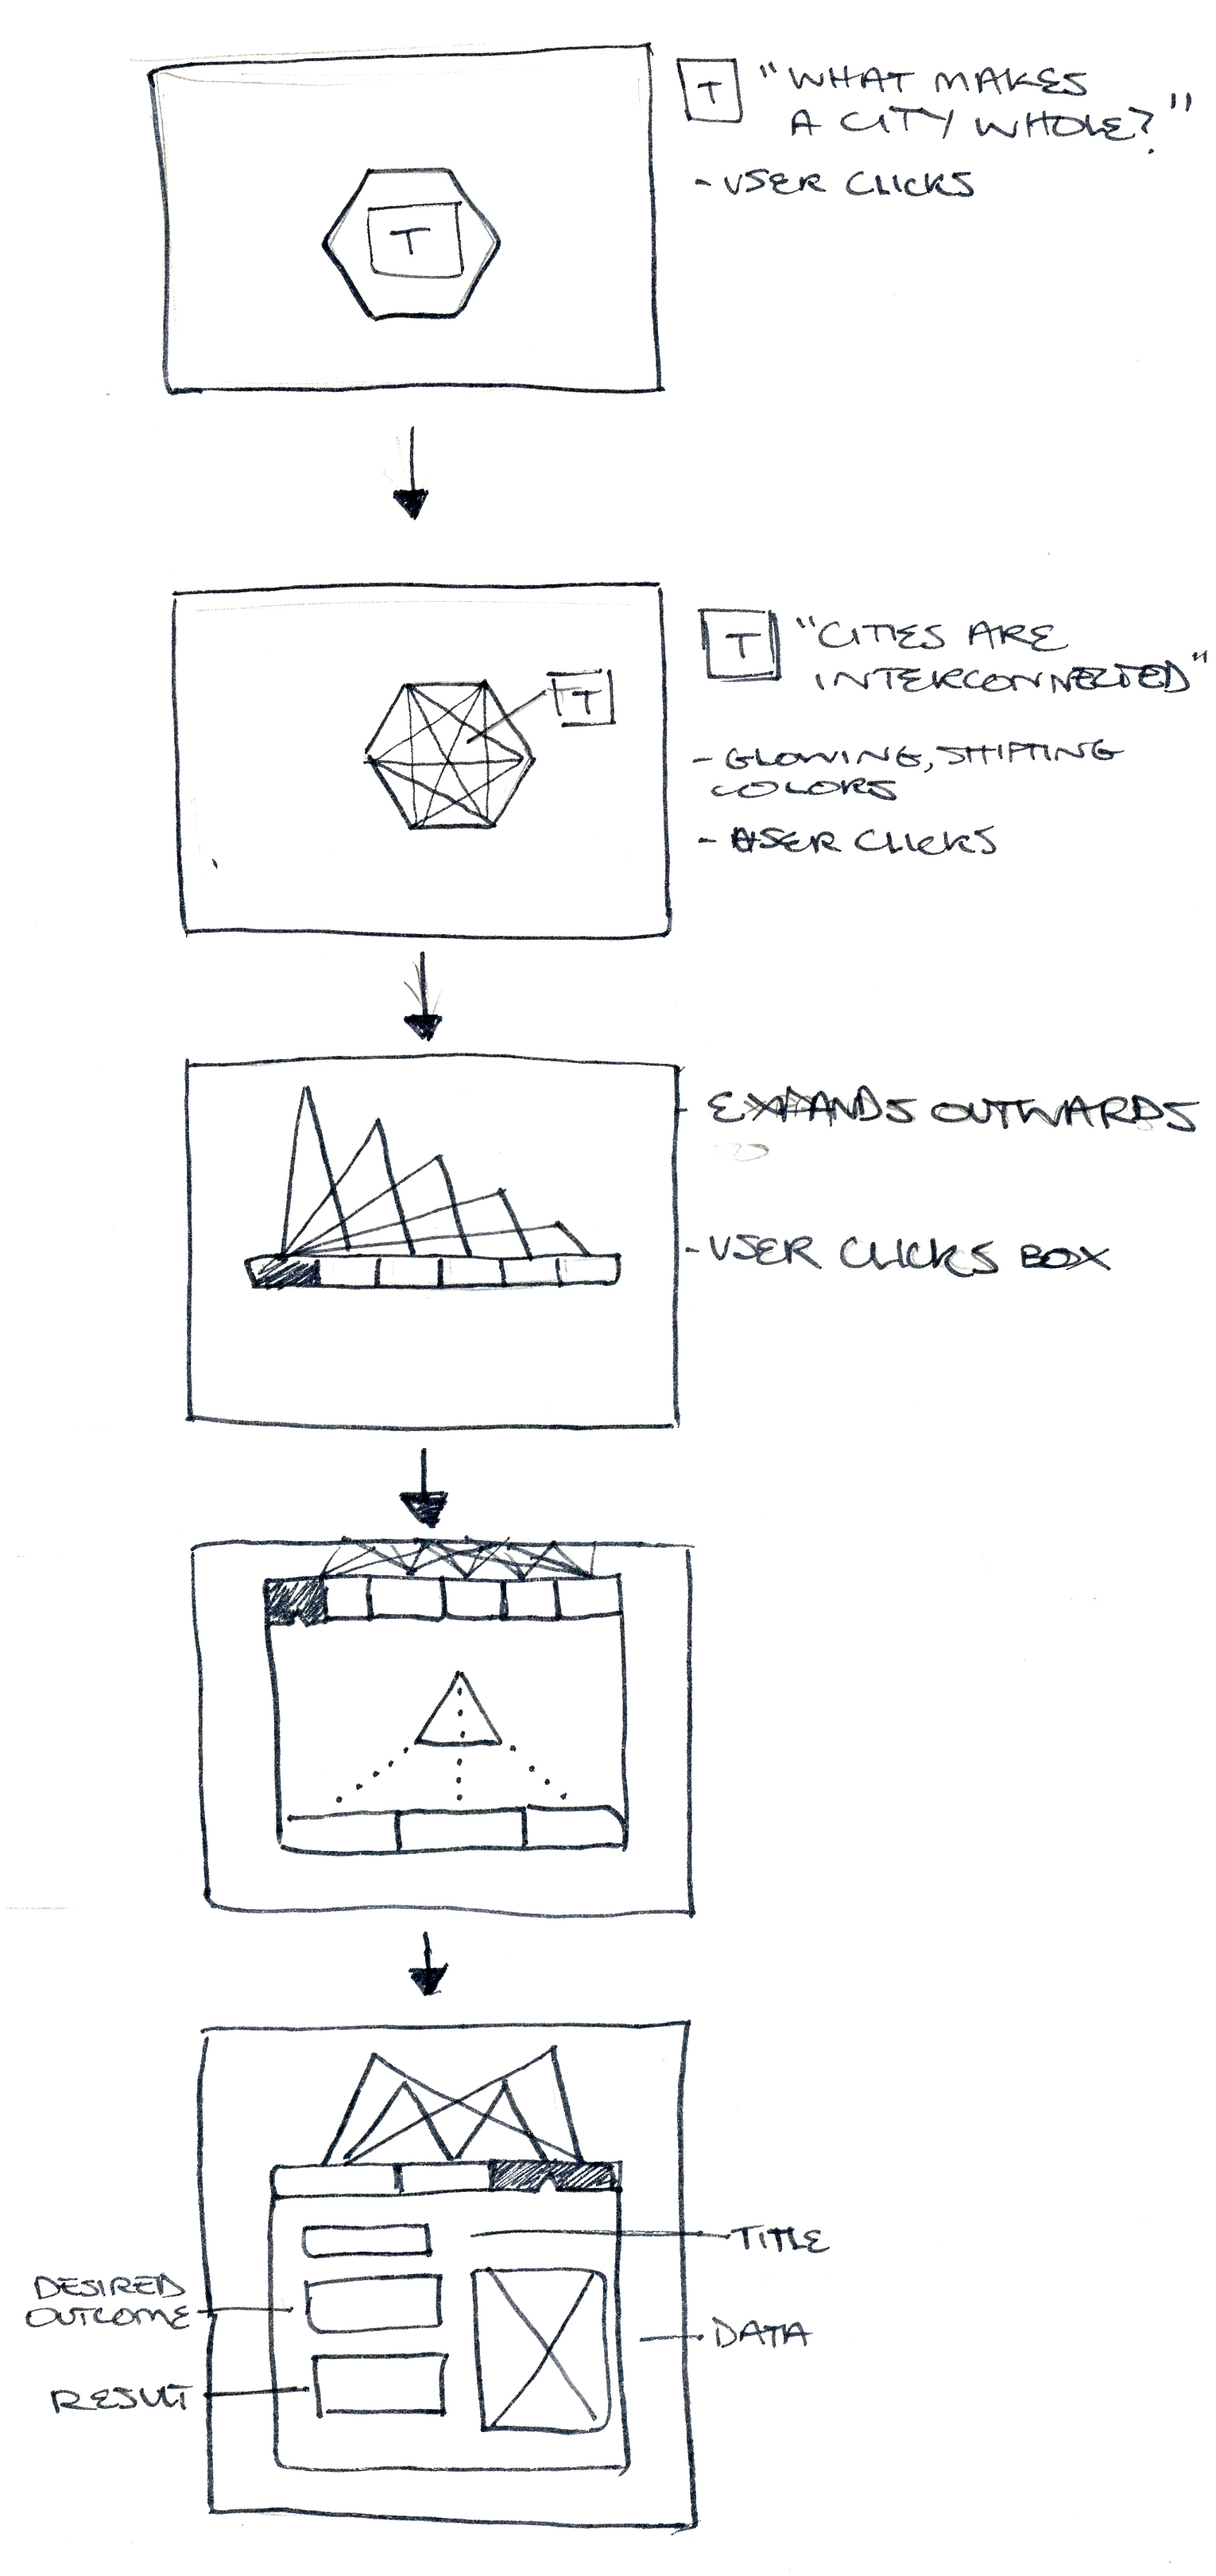 T "WHAT MAKES
A CITY WHOLE?"
- USER CLICKS
T
T "CITIES ARE
INTERCONNECTED"
T
- GLOWING, SHIFTING
COLORS
- USER CLICKS
- EXPANDS OUTWARDS
- USER CLICKS BOX
TITLE
DESIRED
OUTCOME
DATA
RESULT